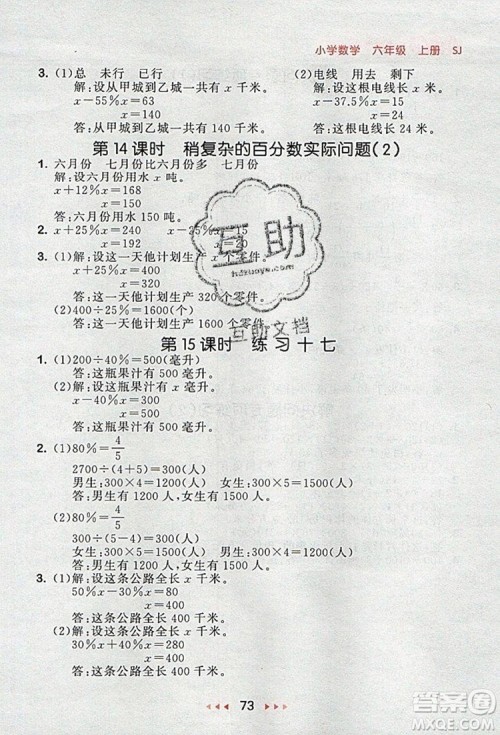 小学数学 六年级 上册 SJ
3. (1)总 未行 已行 (2)电线 用去 剩下
解:设从甲城到乙城一共有 x 千米。 解:设这根电线长 x 米。
x−55%x=63 x−37.5%x=15
x=140 x=24
答:从甲城到乙城一共有 140 千米。 答:这根电线长 24 米。
第 14 课时 稍复杂的百分数实际问题(2)
1. 六月份 七月份比六月份多 七月份
解:设六月份用水 x 吨。
x+12%x=168
x=150
答:六月份用水 150 吨。
2. x+25%x=240 x−25%x=15
x=192 x=20
3. (1)解:设这一天他计划生产 x 个零件。
x+25%x=400
x=320
答:这一天他计划生产 320 个零件。
(2)400÷25%=1600(个)
答:这一天他计划生产 1600 个零件。
第 15 课时 练习十七
1. (1)200÷40%=500(毫升)
答:这瓶果汁有 500 毫升。
(2)解:设这瓶果汁有 x 毫升。
x−40%x=300
x=500
答:这瓶果汁原来有 500 毫升。
2. (1)80%=4/5
2700÷(4+5)=300(人)
男生:300×4=1200(人) 女生:300×5=1500(人)
答:男生有 1200 人,女生有 1500 人。
(2)80%=4/5
300÷(5−4)=300(人)
女生:300×5=1500(人) 男生:300×4=1200(人)
答:男生有 1200 人,女生有 1500 人。
3. (1)解:设这条公路全长 x 千米。
50%x−30%x=80
x=400
答:这条公路全长 400 千米。
(2)解:设这条公路全长 x 千米。
30%x+40%x=280
x=400
答:这条公路全长 400 千米。
73
互助
hdzuoye.com
互助文档
答案圈
MXQE.COM